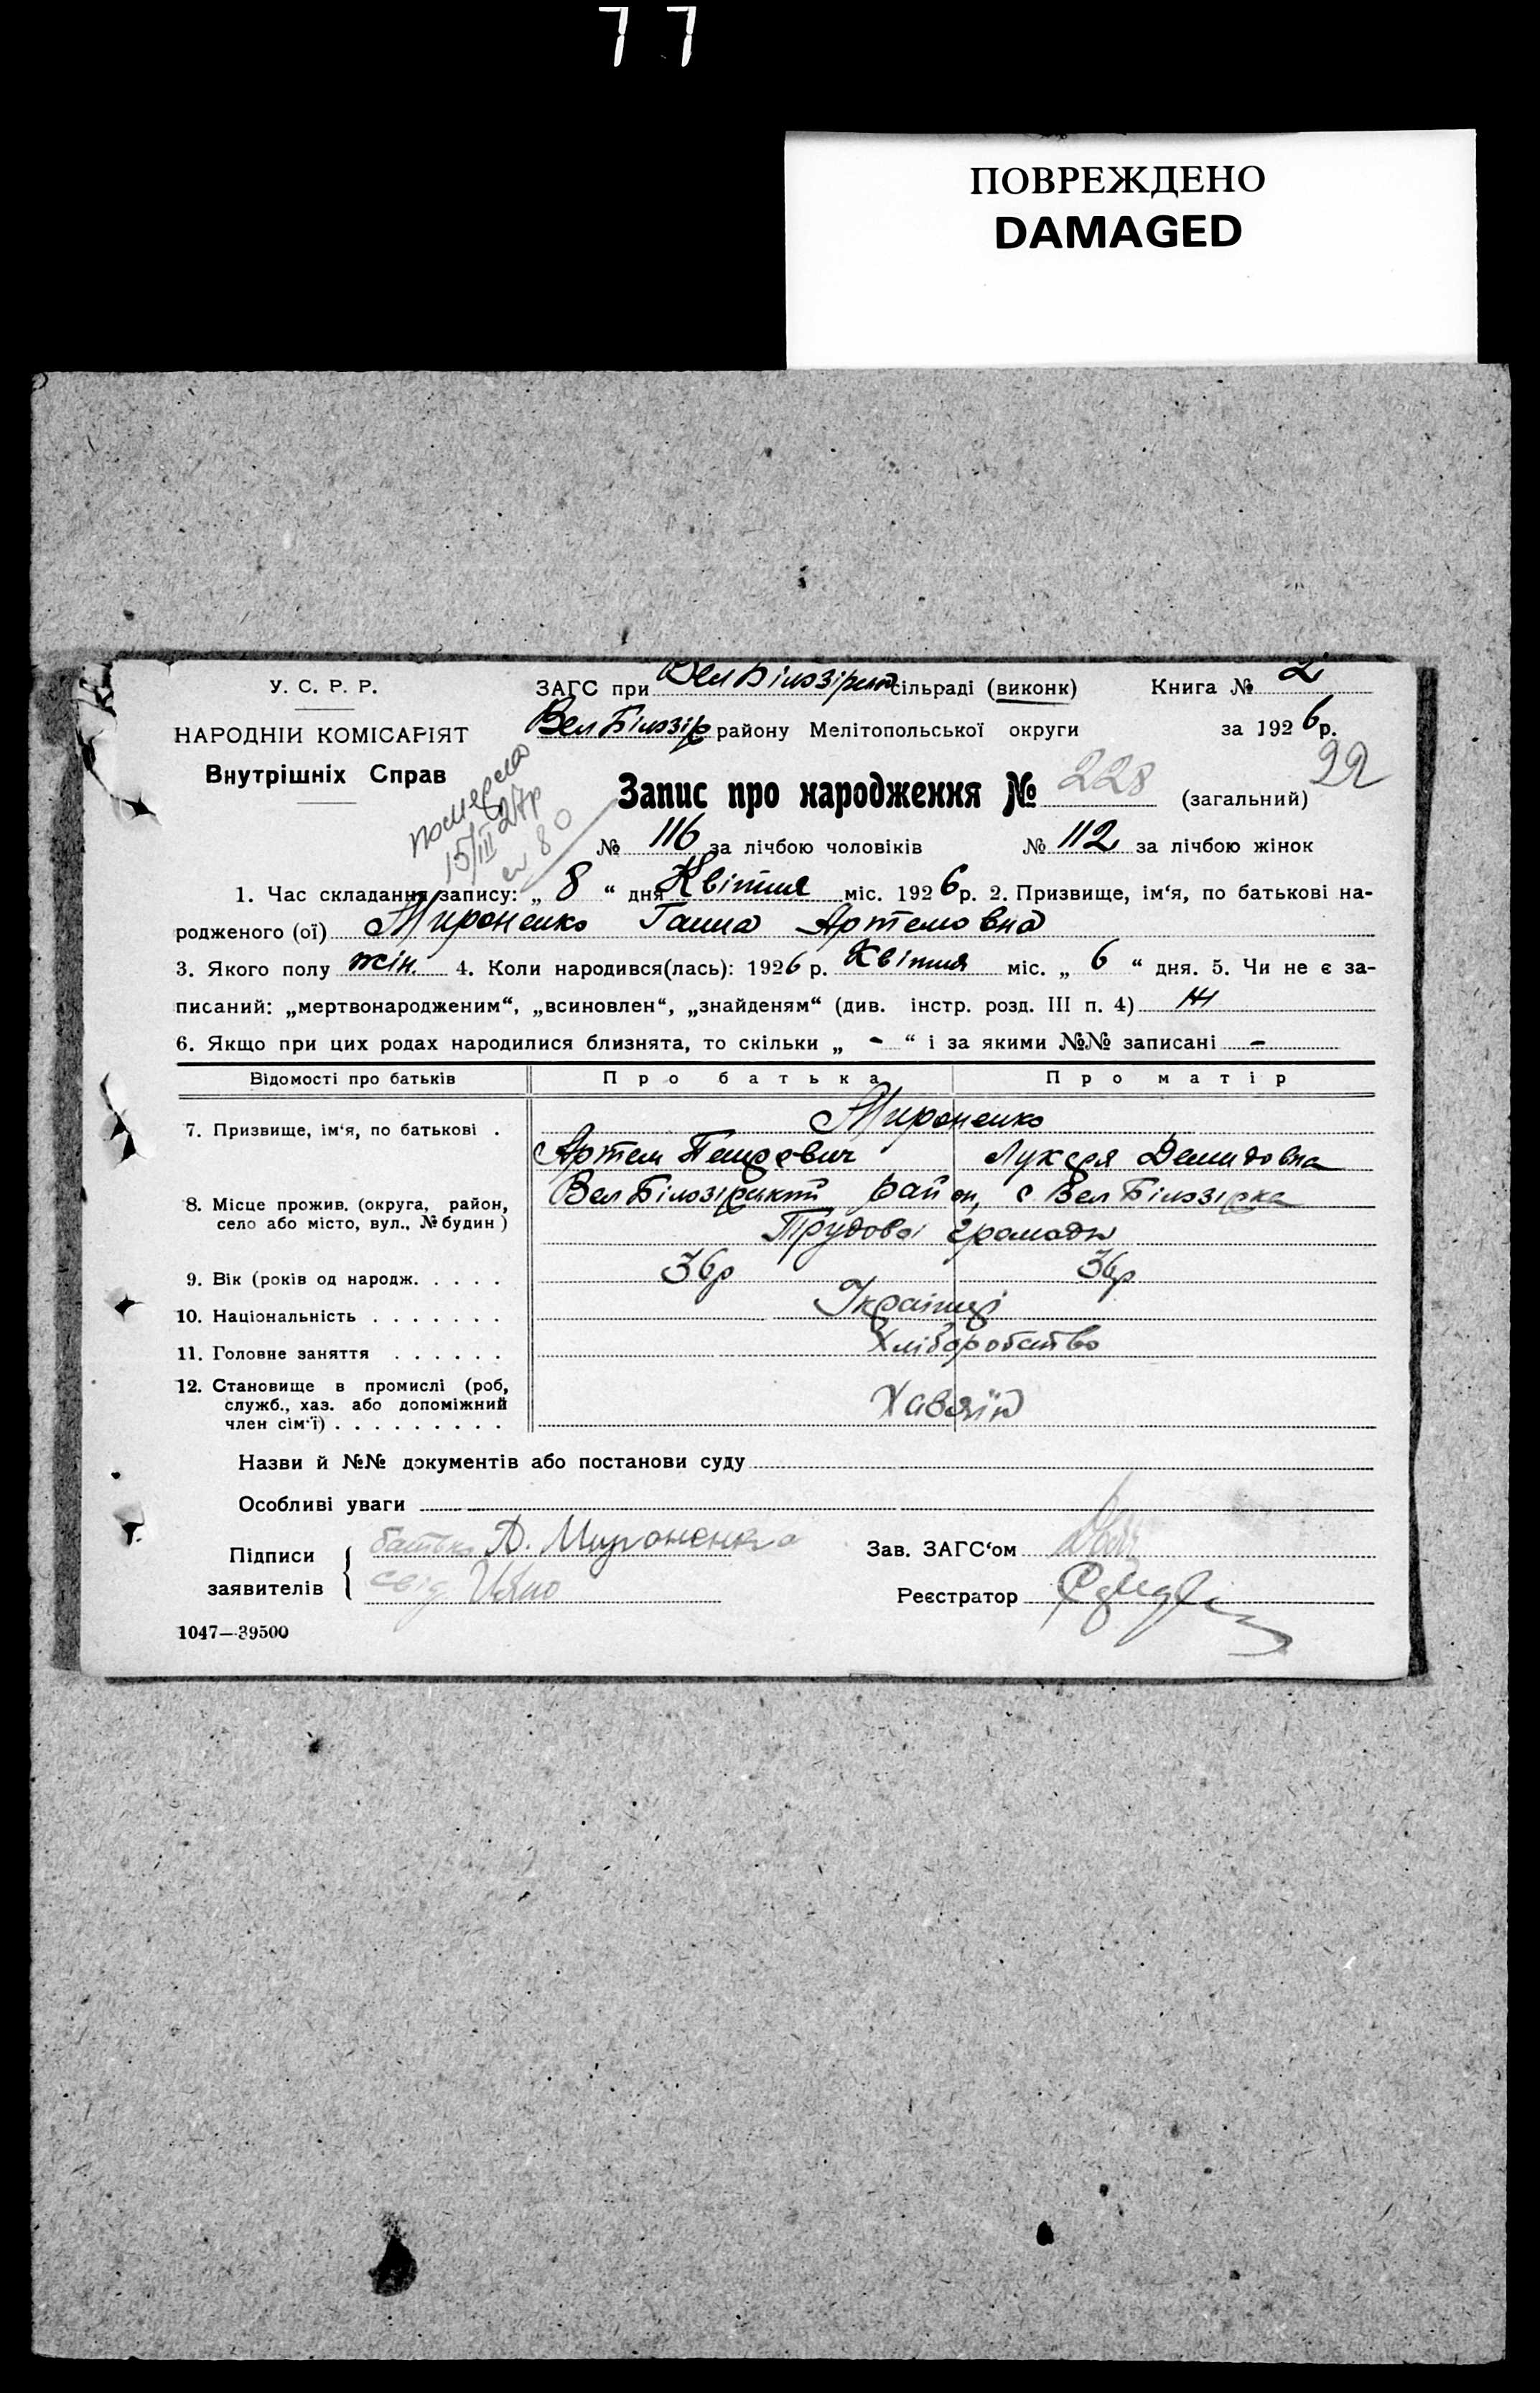 77
ПОВРЕЖДЕНО
DAMAGED
У. С. Р. Р.
НАРОДНІЙ КОМІСАРІЯТ
Внутрішніх Справ
ЗАГС при Вел Білозірськ сільраді (виконк)
Книга № 2
Вел Білозір району Мелітопольської округи
за 1926 р.
22
померла
15/III 27р
80
Запис про народження № 228 (загальний)
№ 116 за лічбою чоловіків № 112 за лічбою жінок
1. Час складання запису: „ 8 “ дня Квітня міс. 1926 р. 2. Призвище, ім‘я, по батькові на-
родженого (ої) Мироненко Ганна Артемовна
3. Якого полу жін. 4. Коли народився(лась): 1926 р. Квітня міс. „ 6 “ дня. 5. Чи не є за-
писаний: „мертвонародженим“, „всиновлен“, „знайденям“ (див. інстр. розд. III п. 4)
6. Якщо при цих родах народилися близнята, то скільки „ - “ і за якими №№ записані -
Відомості про батьків
Про батька
Про матір
7. Призвище, ім‘я, по батькові .
Мироненко
Артем
Лукеря Демидовна
8. Місце прожив. (округа, район,
село або місто, вул., № будин )
Вел Білозірський район, с. Вел Білозірка
Трудової громади
9. Вік (років од народж. . . . .
36р
36р
10. Національність . . . . . . .
Українці
11. Головне заняття . . . . . .
Хліборобство
12. Становище в промислі (роб,
служб., хаз. або допоміжний
член сім‘ї) . . . . . . . . .
Хазяїн
Назви й №№ документів або постанови суду
Особливі уваги
Підписи
заявителів
батько А. Мироненко
свід
Зав. ЗАГС‘ом
Реєстратор
1047—39500